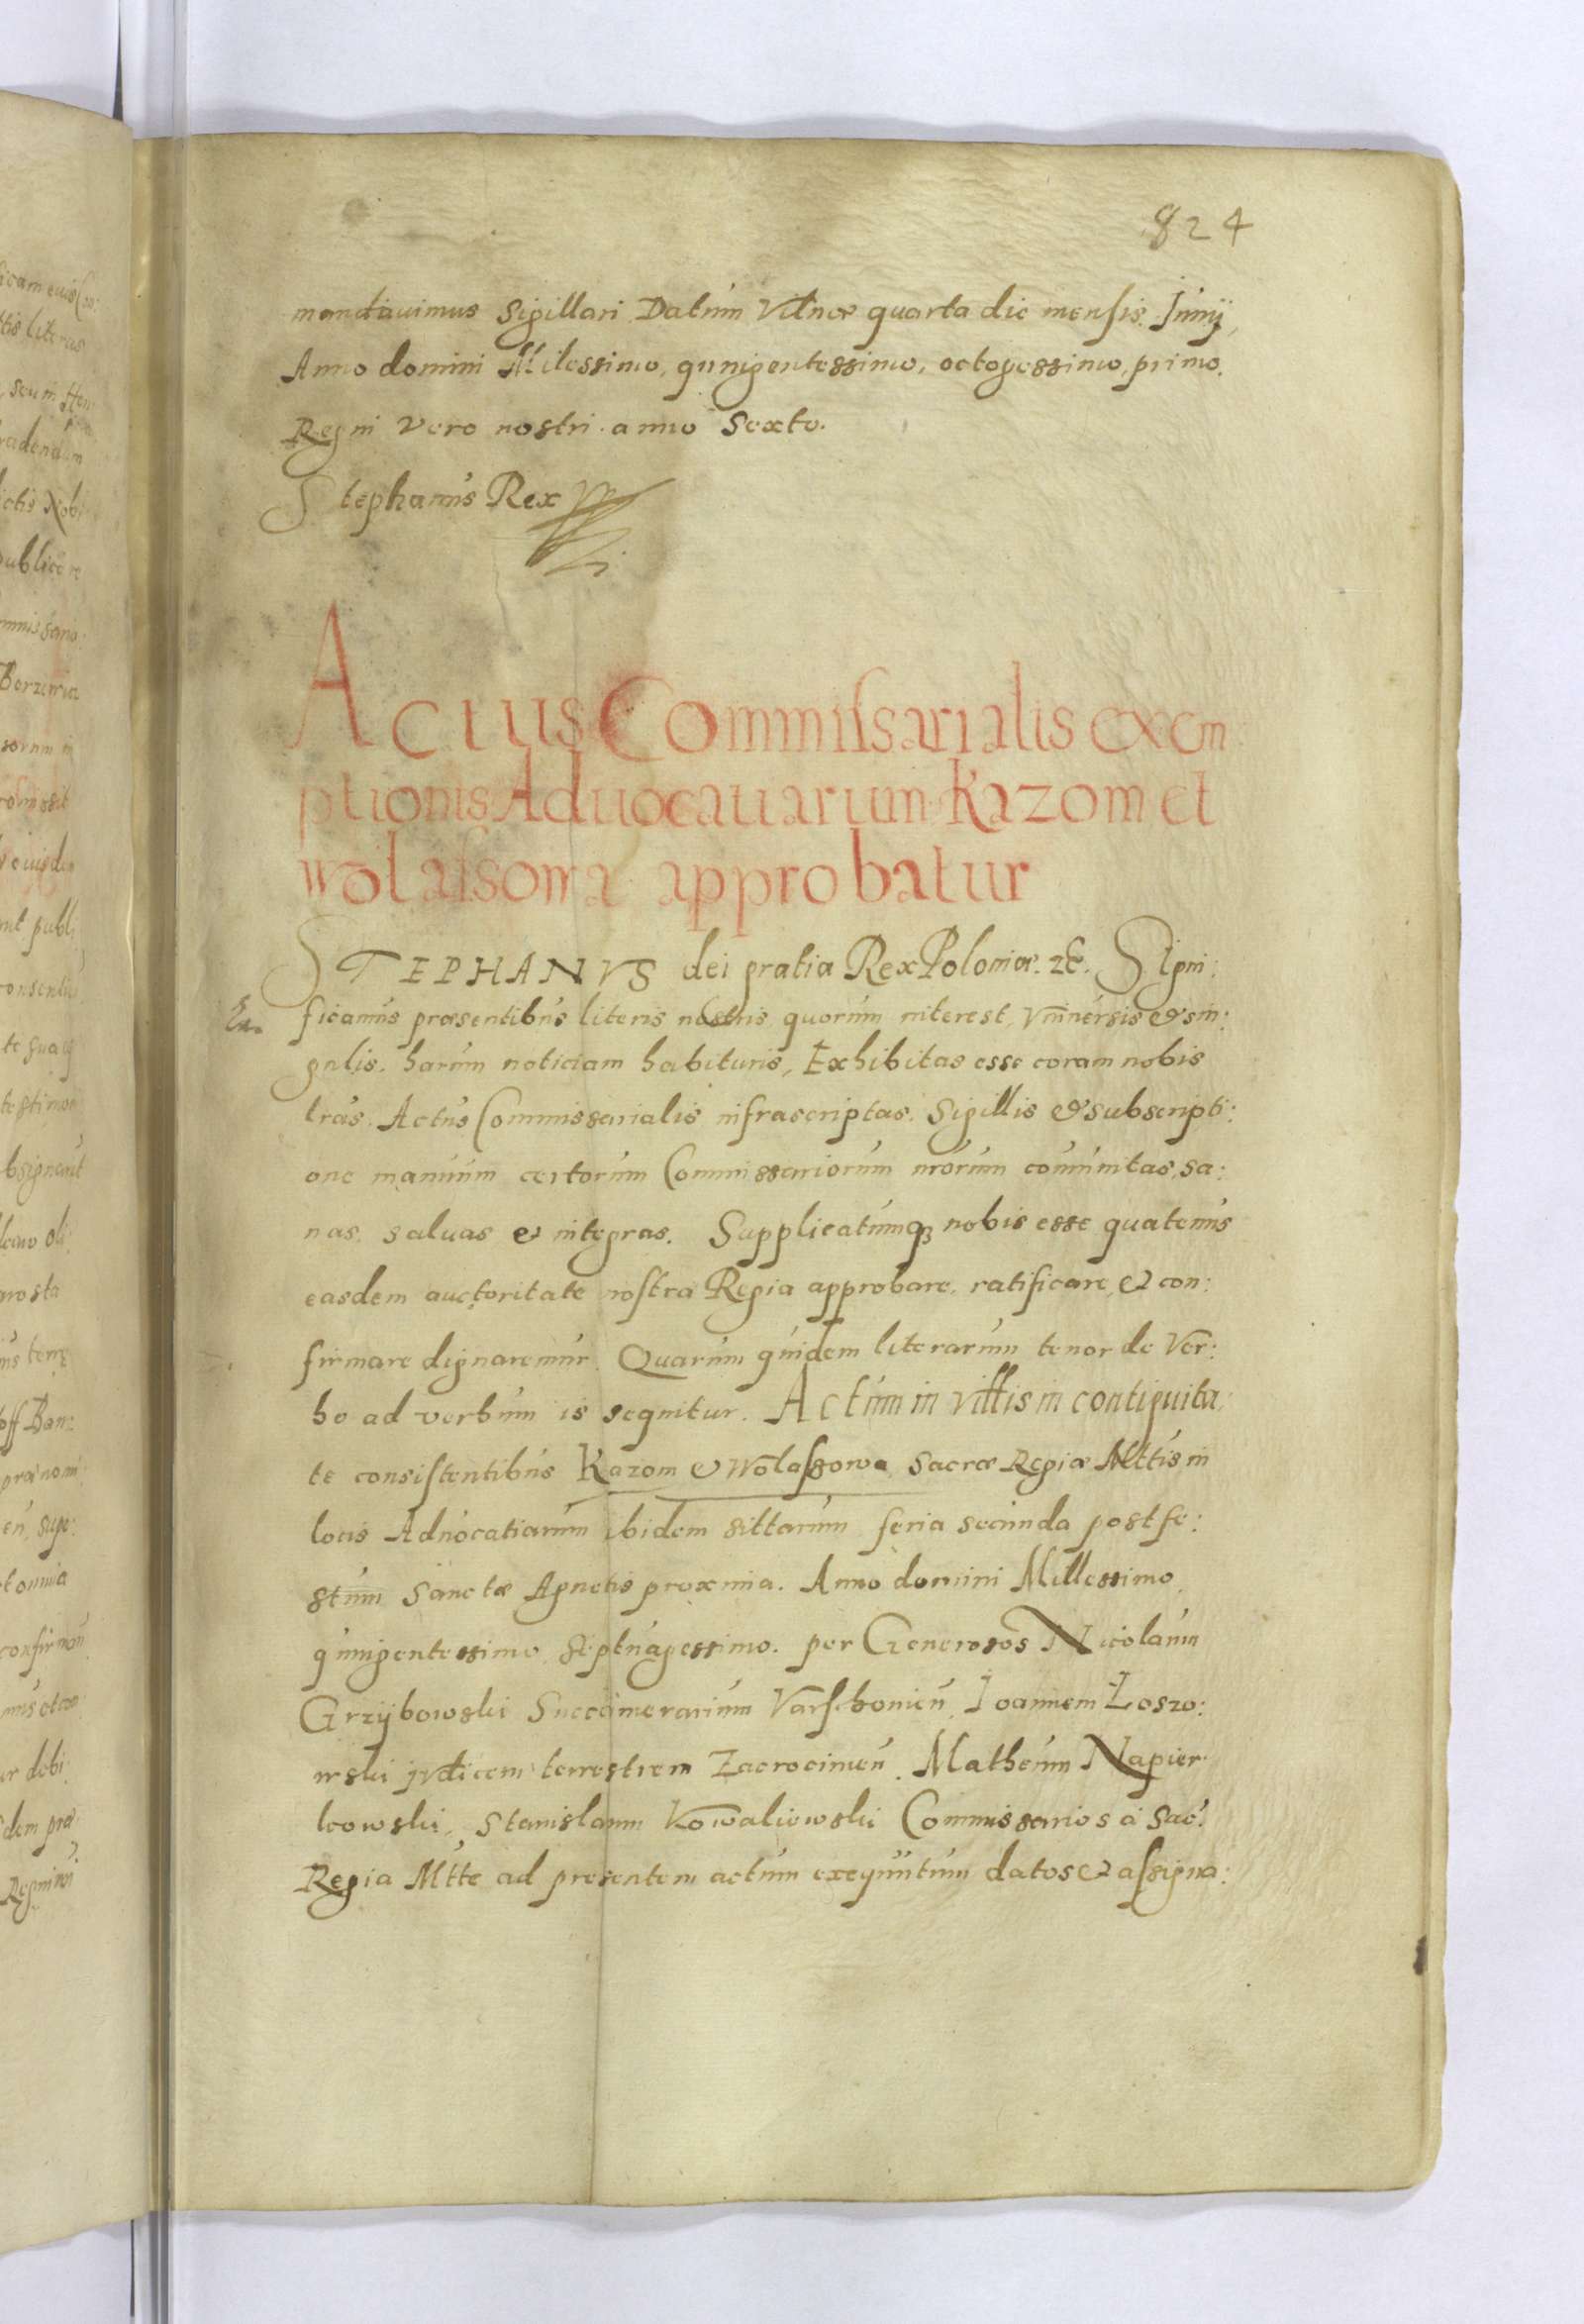 824
mandauimus Sigillari Datum Vilnæ quarta die mensis Junij,
Anno domini Milessimo, quingentessimo, octogessimo, primo.
Regni vero nostri anno Sexto.
Stephanus Rex
Actus Commissarialis exem
ptionis Aduocatiarum Kazom et
wolassowa approbatur
STEPHANVS dei gratia Rex Poloniæ. &c. Signi:
ficamus præsentibus literis nostris quorum interest, Vniuersis & sin:
gulis. harum noticiam habituris, Exhibitas esse coram nobis
lras. Actus Commissarialis infrascriptas. Sigillis & subscripti:
one manuum certorum Commissariorum nrorum comunitas, sa:
nas. saluas & integras. Supplicatumq3 nobis esse quatenus
easdem auctoritate nostra Regia approbare, ratificare, & con:
firmare dignaremur. Quarum quidem literarum tenor de Ver:
bo ad verbum is sequitur. Actum in Villis in contiguita:
te consistentibus Kazom & Wolassowa Sacræ Regiæ Mttis in
locis Aduocatiarum ibidem sittarum feria secunda post fe:
stum Sanctæ Agnetis proxima. Anno domini Millessimo
quingentessimo Septuagessimo. per Generosos Nicolaum
Grzijbowski Succamerarium Varschouien, Ioannem Loszo:
wski iudicem terrestrem Zacrocimen. Matheum Napier
kowski, Stanislaum Kowaliowski Commissarios à Sac:
Regia Mtte ad presentem actum exequutum datos & assigna: